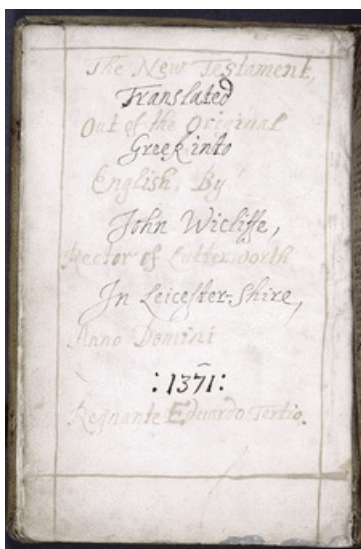 The New Testament,
Translated
Out of the Original
Greek into
English, By
John Wicliffe,
Rector of Lutterworth
In Leicester-Shire,
Anno Domini
:1371:
Regnante Eduardo Tertio.